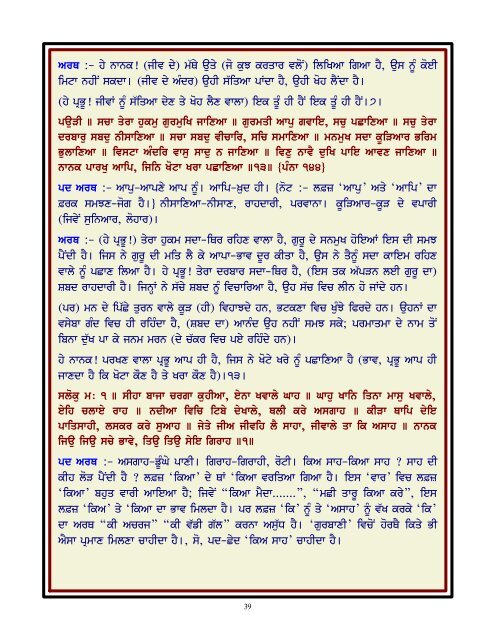 ਅਰਥ :- ਹੇ ਨਾਨਕ! (ਜੀਵ ਦੇ) ਮੱਥੇ ਉਤੇ (ਜੋ ਕੁਝ ਕਰਤਾਰ ਵਲੋਂ) ਲਿਖਿਆ ਗਿਆ ਹੈ, ਉਸ ਨੂੰ ਕੋਈ
ਮਿਟਾ ਨਹੀਂ ਸਕਦਾ। (ਜੀਵ ਦੇ ਅੰਦਰ) ਉਹੀ ਸੱਤਿਆ ਪਾਂਦਾ ਹੈ, ਉਹੀ ਖੋਹ ਲੈਂਦਾ ਹੈ।
(ਹੇ ਪ੍ਰਭੂ! ਜੀਵਾਂ ਨੂੰ ਸੱਤਿਆ ਦੇਣ ਤੇ ਖੋਹ ਲੈਣ ਵਾਲਾ) ਇਕ ਤੂੰ ਹੀ ਹੈਂ ਇਕ ਤੂੰ ਹੀ ਹੈਂ।੭।
ਪਉੜੀ ॥ ਸਚਾ ਤੇਰਾ ਹੁਕਮੁ ਗੁਰਮੁਖਿ ਜਾਣਿਆ ॥ ਗੁਰਮਤੀ ਆਪੁ ਗਵਾਇ, ਸਚੁ ਪਛਾਣਿਆ ॥ ਸਚੁ ਤੇਰਾ
ਦਰਬਾਰੁ ਸਬਦੁ ਨੀਸਾਣਿਆ ॥ ਸਚਾ ਸਬਦੁ ਵੀਚਾਰਿ, ਸਚਿ ਸਮਾਣਿਆ ॥ ਮਨਮੁਖ ਸਦਾ ਕੂੜਿਆਰ ਭਰਮਿ
ਭੁਲਾਣਿਆ ॥ ਵਿਸਟਾ ਅੰਦਰਿ ਵਾਸੁ ਸਾਦੁ ਨ ਜਾਣਿਆ ॥ ਵਿਣੁ ਨਾਵੈ ਦੁਖਿ ਪਾਇ ਆਵਣ ਜਾਣਿਆ ॥
ਨਾਨਕ ਪਾਰਖੁ ਆਪਿ, ਜਿਨਿ ਖੋਟਾ ਖਰਾ ਪਛਾਣਿਆ ॥੧੩॥ {ਪੰਨਾ ੧੪੪}
ਪਦ ਅਰਥ :- ਆਪੁ-ਆਪਣੇ ਆਪ ਨੂੰ। ਆਪਿ-ਖ਼ੁਦ ਹੀ। {ਨੋਟ :- ਲਫ਼ਜ਼ 'ਆਪੁ' ਅਤੇ 'ਆਪਿ' ਦਾ
ਫ਼ਰਕ ਸਮਝਣ-ਜੋਗ ਹੈ।} ਨੀਸਾਣਿਆ-ਨੀਸਾਣ, ਰਾਹਦਾਰੀ, ਪਰਵਾਨਾ। ਕੂੜਿਆਰ-ਕੂੜ ਦੇ ਵਪਾਰੀ
(ਜਿਵੇਂ ਸੁਨਿਆਰ, ਲੋਹਾਰ)।
ਅਰਥ :- (ਹੇ ਪ੍ਰਭੂ!) ਤੇਰਾ ਹੁਕਮ ਸਦਾ-ਥਿਰ ਰਹਿਣ ਵਾਲਾ ਹੈ, ਗੁਰੂ ਦੇ ਸਨਮੁਖ ਹੋਇਆਂ ਇਸ ਦੀ ਸਮਝ
ਪੈਂਦੀ ਹੈ। ਜਿਸ ਨੇ ਗੁਰੂ ਦੀ ਮਤਿ ਲੈ ਕੇ ਆਪਾ-ਭਾਵ ਦੂਰ ਕੀਤਾ ਹੈ, ਉਸ ਨੇ ਤੈਨੂੰ ਸਦਾ ਕਾਇਮ ਰਹਿਣ
ਵਾਲੇ ਨੂੰ ਪਛਾਣ ਲਿਆ ਹੈ। ਹੇ ਪ੍ਰਭੂ! ਤੇਰਾ ਦਰਬਾਰ ਸਦਾ-ਥਿਰ ਹੈ, (ਇਸ ਤਕ ਅੱਪੜਨ ਲਈ ਗੁਰੂ ਦਾ)
ਸ਼ਬਦ ਰਾਹਦਾਰੀ ਹੈ। ਜਿਨ੍ਹਾਂ ਨੇ ਸੱਚੇ ਸ਼ਬਦ ਨੂੰ ਵਿਚਾਰਿਆ ਹੈ, ਉਹ ਸੱਚ ਵਿਚ ਲੀਨ ਹੋ ਜਾਂਦੇ ਹਨ।
(ਪਰ) ਮਨ ਦੇ ਪਿੱਛੇ ਤੁਰਨ ਵਾਲੇ ਕੂੜ (ਹੀ) ਵਿਹਾਝਦੇ ਹਨ, ਭਟਕਣਾ ਵਿਚ ਖੁੰਝੇ ਫਿਰਦੇ ਹਨ। ਉਹਨਾਂ ਦਾ
ਵਸੇਬਾ ਗੰਦ ਵਿਚ ਹੀ ਰਹਿੰਦਾ ਹੈ, (ਸ਼ਬਦ ਦਾ) ਆਨੰਦ ਉਹ ਨਹੀਂ ਸਮਝ ਸਕੇ; ਪਰਮਾਤਮਾ ਦੇ ਨਾਮ ਤੋਂ
ਬਿਨਾ ਦੁੱਖ ਪਾ ਕੇ ਜਨਮ ਮਰਨ (ਦੇ ਚੱਕਰ ਵਿਚ ਪਏ ਰਹਿੰਦੇ ਹਨ)।
ਹੇ ਨਾਨਕ! ਪਰਖਣ ਵਾਲਾ ਪ੍ਰਭੂ ਆਪ ਹੀ ਹੈ, ਜਿਸ ਨੇ ਖੋਟੇ ਖਰੇ ਨੂੰ ਪਛਾਣਿਆ ਹੈ (ਭਾਵ, ਪ੍ਰਭੂ ਆਪ ਹੀ
ਜਾਣਦਾ ਹੈ ਕਿ ਖੋਟਾ ਕੌਣ ਹੈ ਤੇ ਖਰਾ ਕੌਣ ਹੈ)।੧੩।
ਸਲੋਕੁ ਮਃ ੧ ॥ ਸੀਹਾ ਬਾਜਾ ਚਰਗਾ ਕੁਹੀਆ, ਏਨਾ ਖਵਾਲੇ ਘਾਹ ॥ ਘਾਹੁ ਖਾਨਿ ਤਿਨਾ ਮਾਸੁ ਖਵਾਲੇ,
ਏਹਿ ਚਲਾਏ ਰਾਹ ॥ ਨਦੀਆ ਵਿਚਿ ਟਿਬੇ ਦੇਖਾਲੇ, ਥਲੀ ਕਰੇ ਅਸਗਾਹ ॥ ਕੀੜਾ ਥਾਪਿ ਦੇਇ
ਪਾਤਿਸਾਹੀ, ਲਸਕਰ ਕਰੇ ਸੁਆਹ ॥ ਜੇਤੇ ਜੀਅ ਜੀਵਹਿ ਲੈ ਸਾਹਾ, ਜੀਵਾਲੇ ਤਾ ਕਿ ਅਸਾਹ ॥ ਨਾਨਕ
ਜਿਉ ਜਿਉ ਸਚੇ ਭਾਵੈ, ਤਿਉ ਤਿਉ ਦੇਇ ਗਿਰਾਹ ॥੧॥
ਪਦ ਅਰਥ :- ਅਸਗਾਹ-ਡੂੰਘੇ ਪਾਣੀ। ਗਿਰਾਹ-ਗਿਰਾਹੀ, ਰੋਟੀ। ਕਿਅ ਸਾਹ-ਕਿਆ ਸਾਹ ? ਸਾਹ ਦੀ
ਕੀਹ ਲੋੜ ਪੈਂਦੀ ਹੈ ? ਲਫ਼ਜ਼ 'ਕਿਆ' ਦੇ ਥਾਂ 'ਕਿਅ' ਵਰਤਿਆ ਗਿਆ ਹੈ। ਇਸ 'ਵਾਰ' ਵਿਚ ਲਫ਼ਜ਼
'ਕਿਆ' ਬਹੁਤ ਵਾਰੀ ਆਇਆ ਹੈ; ਜਿਵੇਂ "ਕਿਆ ਮੈਦਾ.......", "ਮਛੀ ਤਾਰੂ ਕਿਆ ਕਰੇ", ਇਸ
ਲਫ਼ਜ਼ 'ਕਿਅ' ਤੇ 'ਕਿਆ' ਦਾ ਭਾਵ ਮਿਲਦਾ ਹੈ। ਪਰ ਲਫ਼ਜ਼ 'ਕਿ' ਨੂੰ ਤੇ 'ਅਸਾਹ' ਨੂੰ ਵੱਖ ਕਰਕੇ 'ਕਿ'
ਦਾ ਅਰਥ "ਕੀ ਅਚਰਜ" "ਕੀ ਵੱਡੀ ਗੱਲ" ਕਰਨਾ ਅਸ਼ੁੱਧ ਹੈ। 'ਗੁਰਬਾਣੀ' ਵਿਚੋਂ ਹੋਰਥੈ ਕਿਤੇ ਭੀ
ਐਸਾ ਪ੍ਰਮਾਣ ਮਿਲਣਾ ਚਾਹੀਦਾ ਹੈ।, ਸੋ, ਪਦ-ਛੇਦ 'ਕਿਅ ਸਾਹ' ਚਾਹੀਦਾ ਹੈ।
39